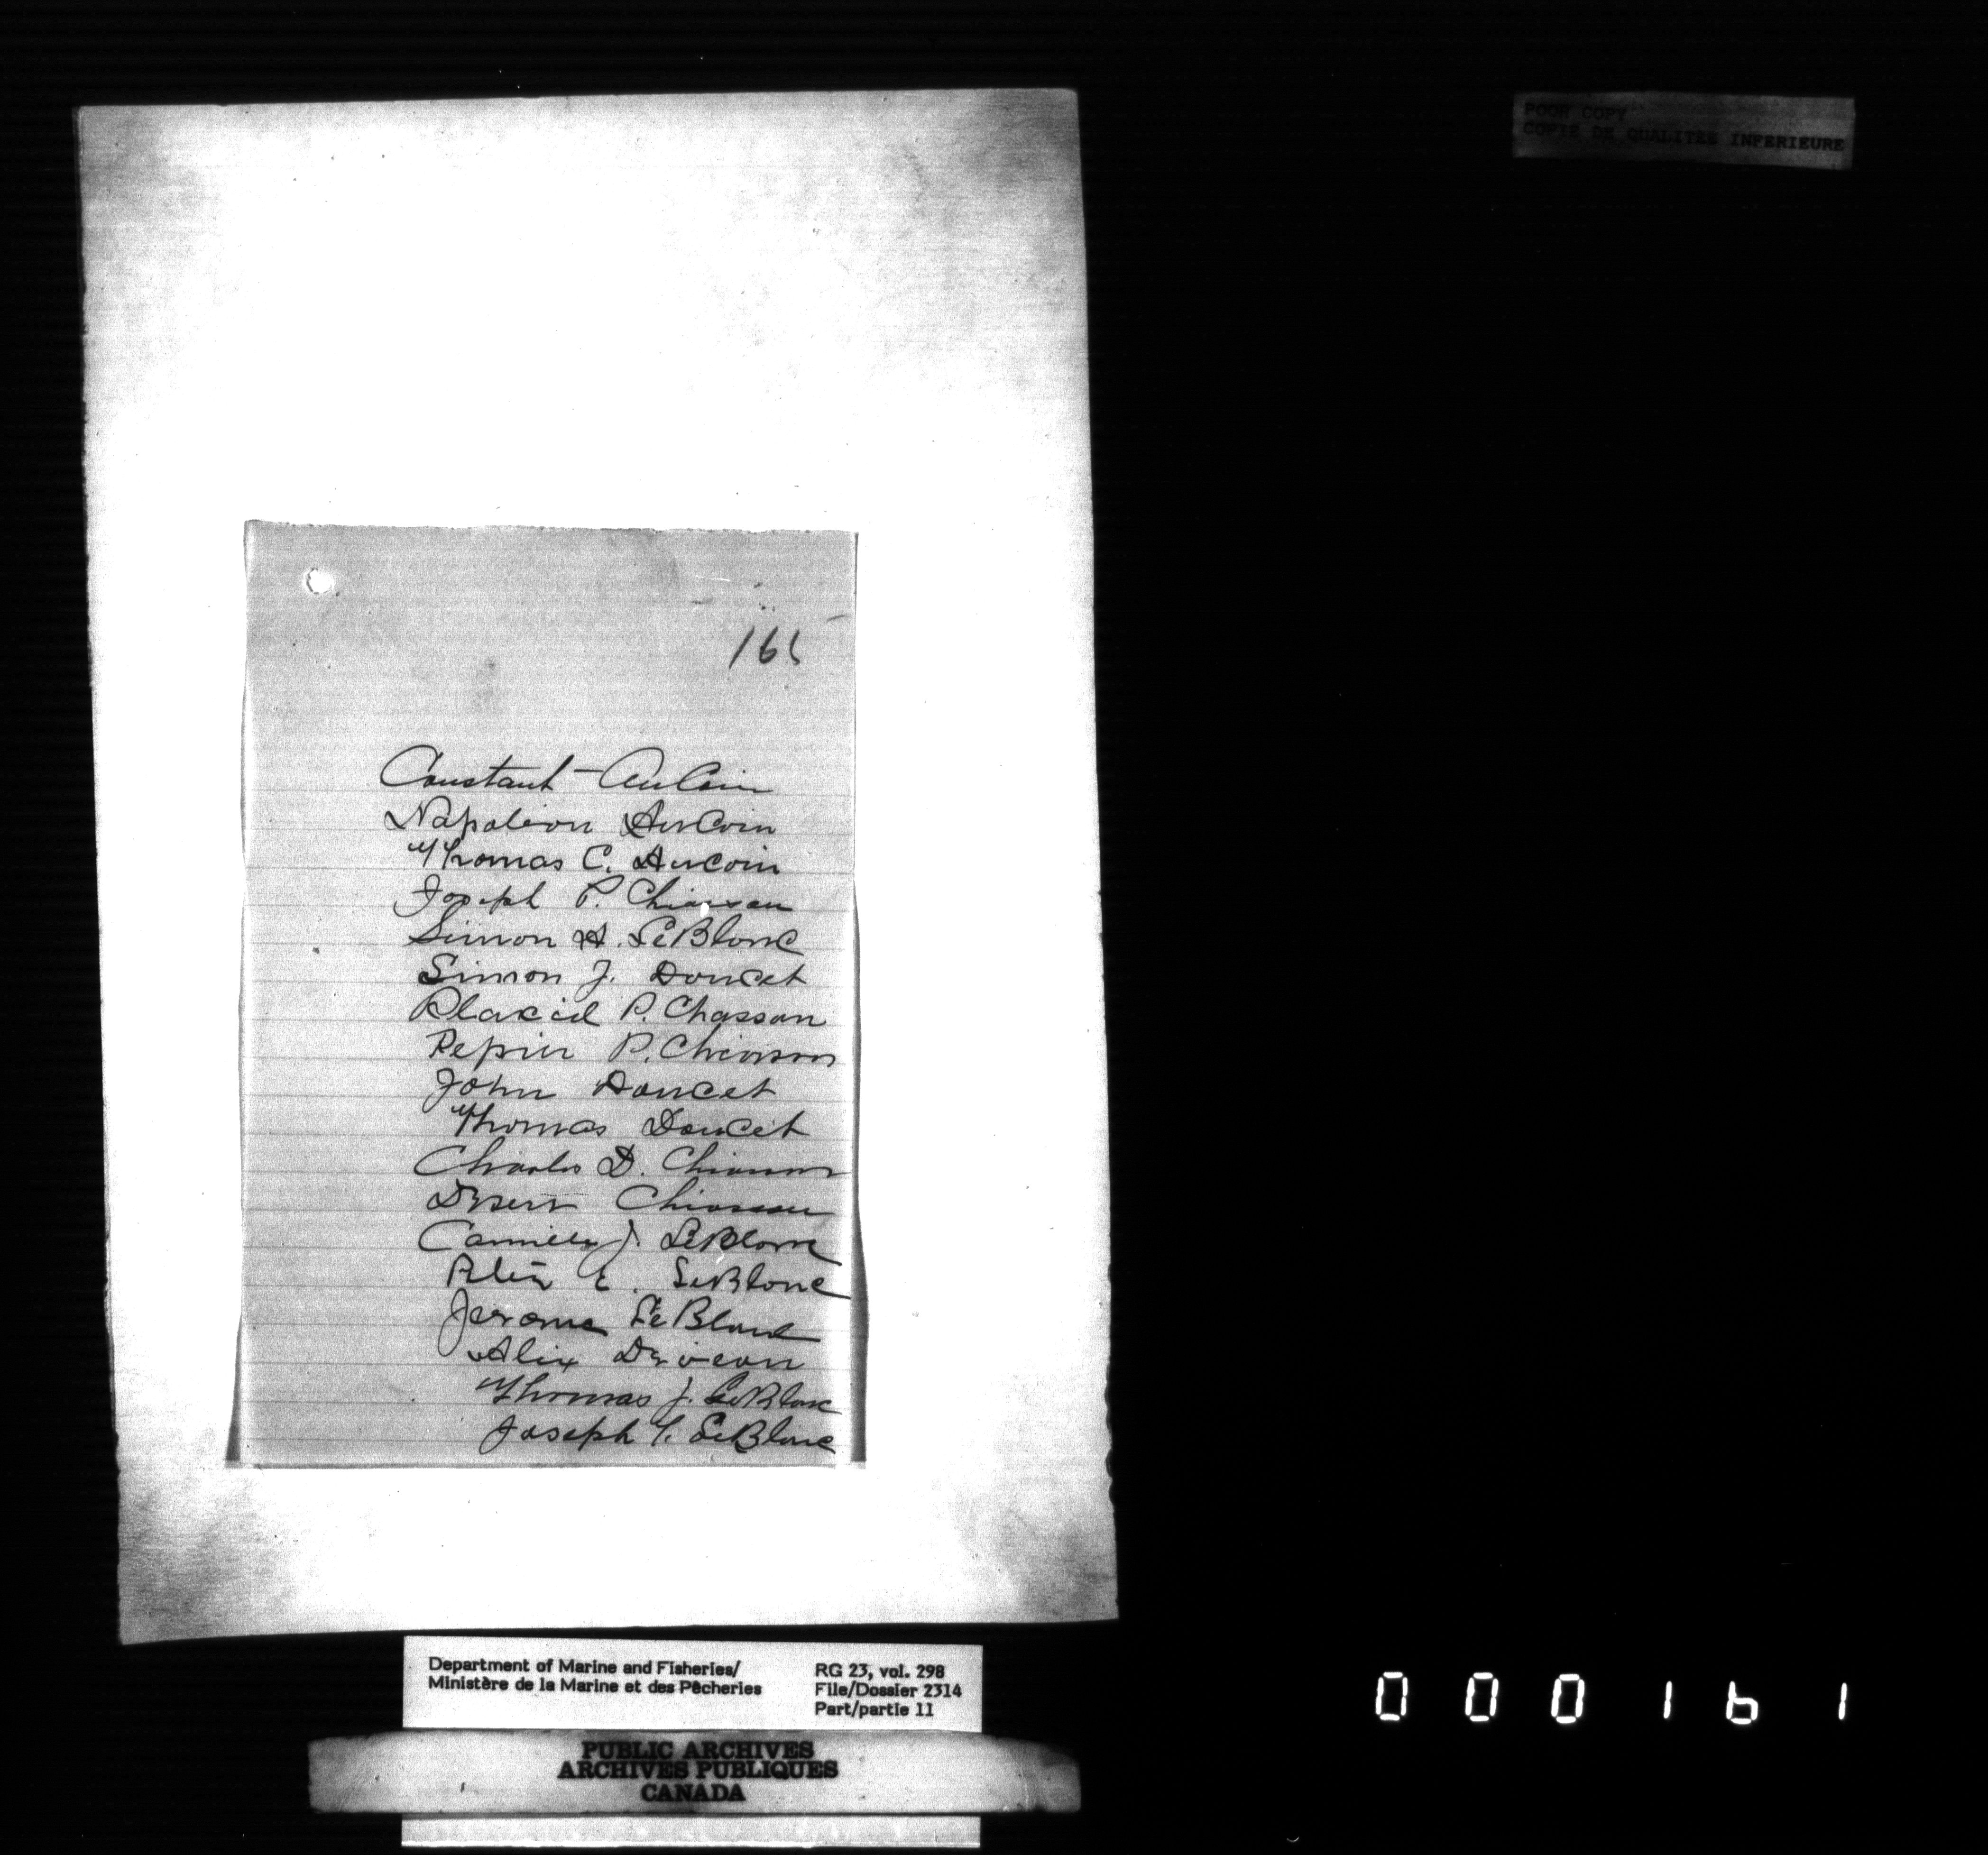 POOR COPY
COPIE DE QUALITEE INFERIEURE
165
Constant AuCoin
Napoleon AuCoin
Thomas C. Aucoin
Joseph P. Chiasson
Simon A. LeBlanc
Simon J. Doucet
Placid P. Chasson
Pepin P. Chiasson
John Doucet
Thomas Doucet
Charles D. Chiasson
Chiasson
Camille J. LeBlanc
E. LeBlanc
Jerome LeBlanc
Alix Deveau
Thomas J. LeBlanc
Joseph T. LeBlanc
Department of Marine and Fisheries/
Ministère de la Marine et des Pêcheries
RG 23, vol. 298
File/Dossier 2314
Part/partie 11
PUBLIC ARCHIVES
ARCHIVES PUBLIQUES
CANADA
000161